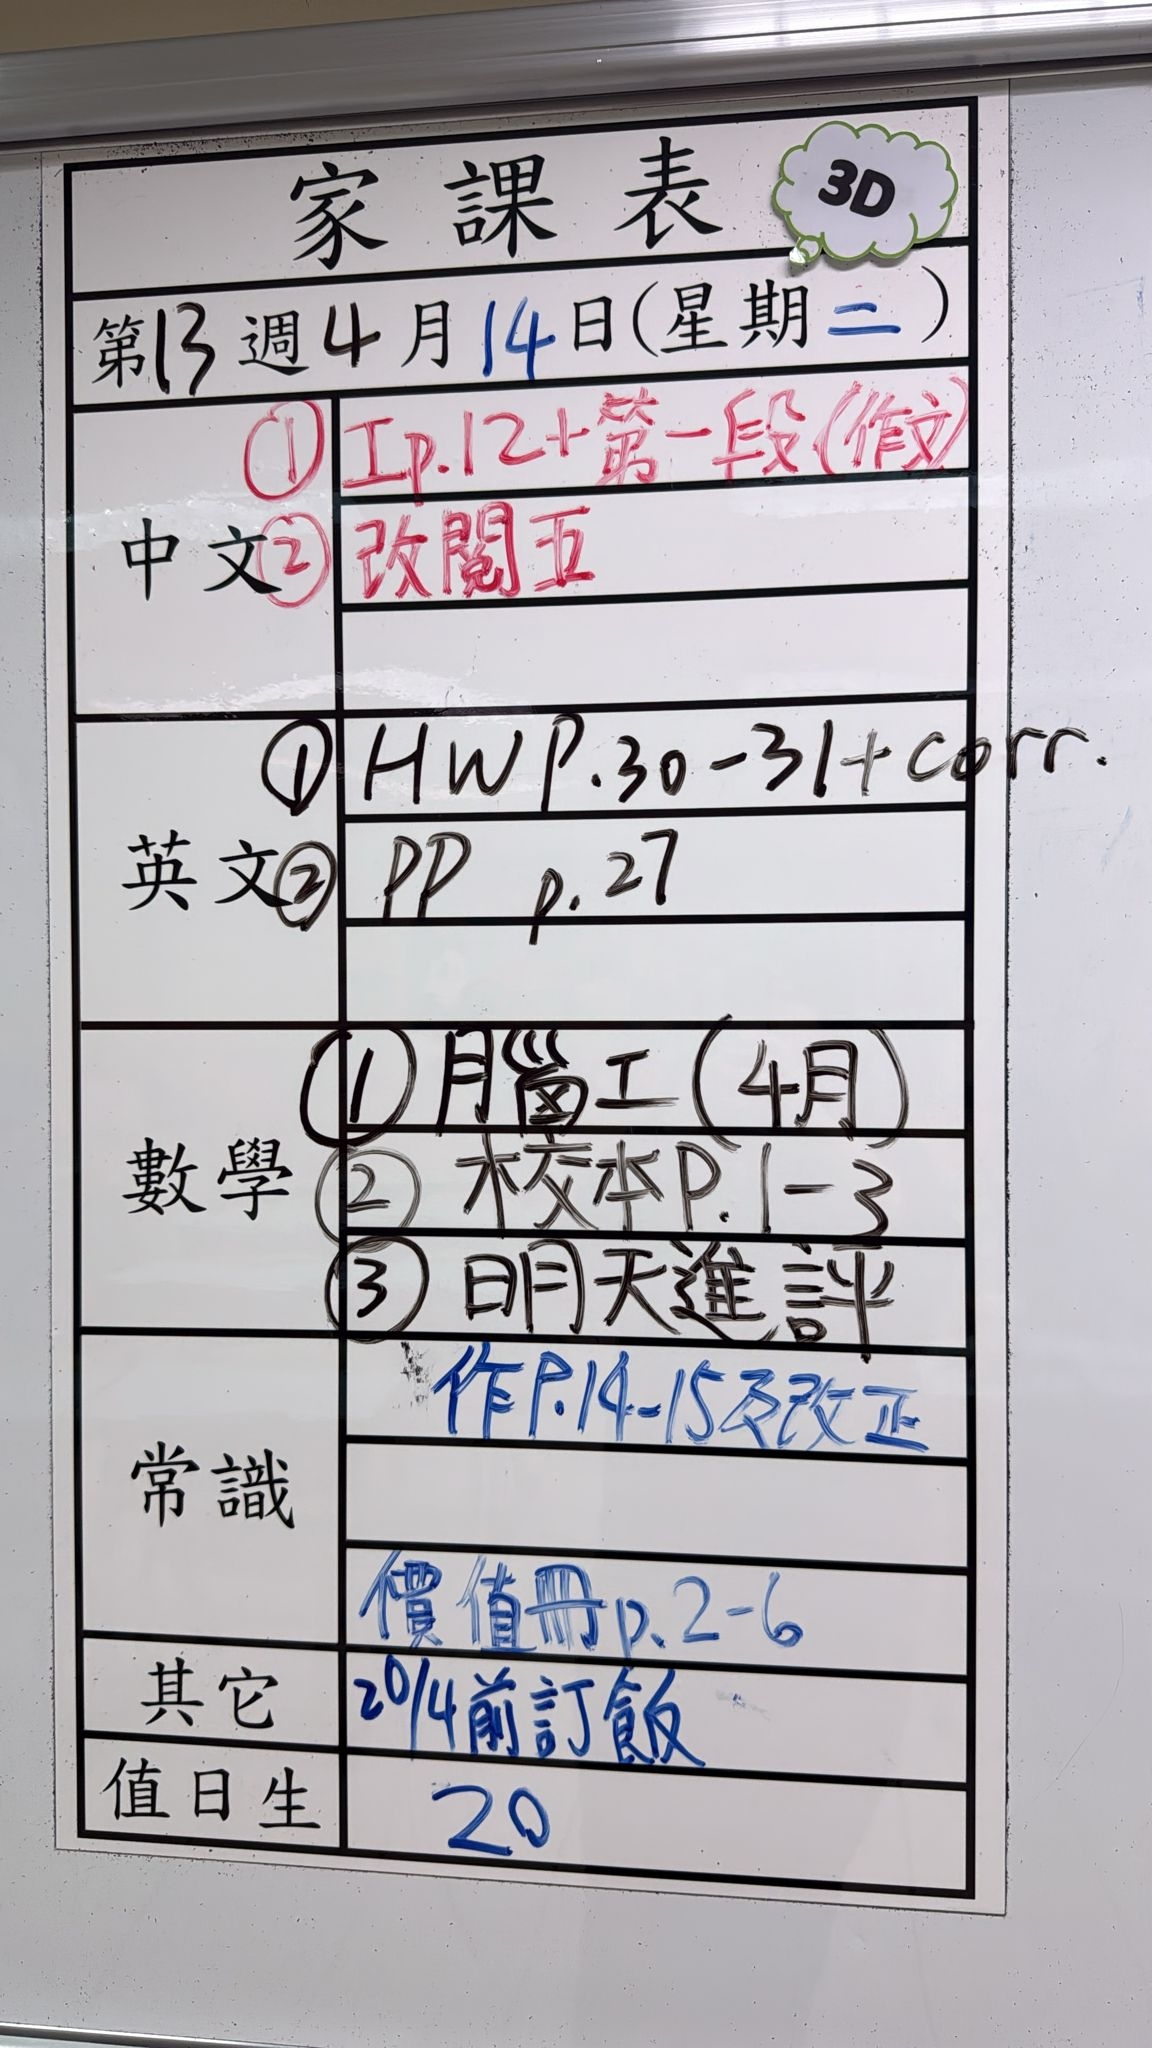 家課表
3D
第13週4月14日(星期二)
中文
① 工p.12+第一段(作文)
② 改閱五
英文
① HW P.30-31+corr.
② PP p.27
數學
① 月腦工(4月)
② 校本P.1-3
③ 明天進評
常識
作P.14-15及改正
價值冊p.2-6
其它
20/4前訂飯
值日生
20